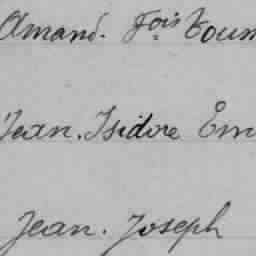 Amand. Fois Toum
Jean. Isidore Em
Jean. Joseph